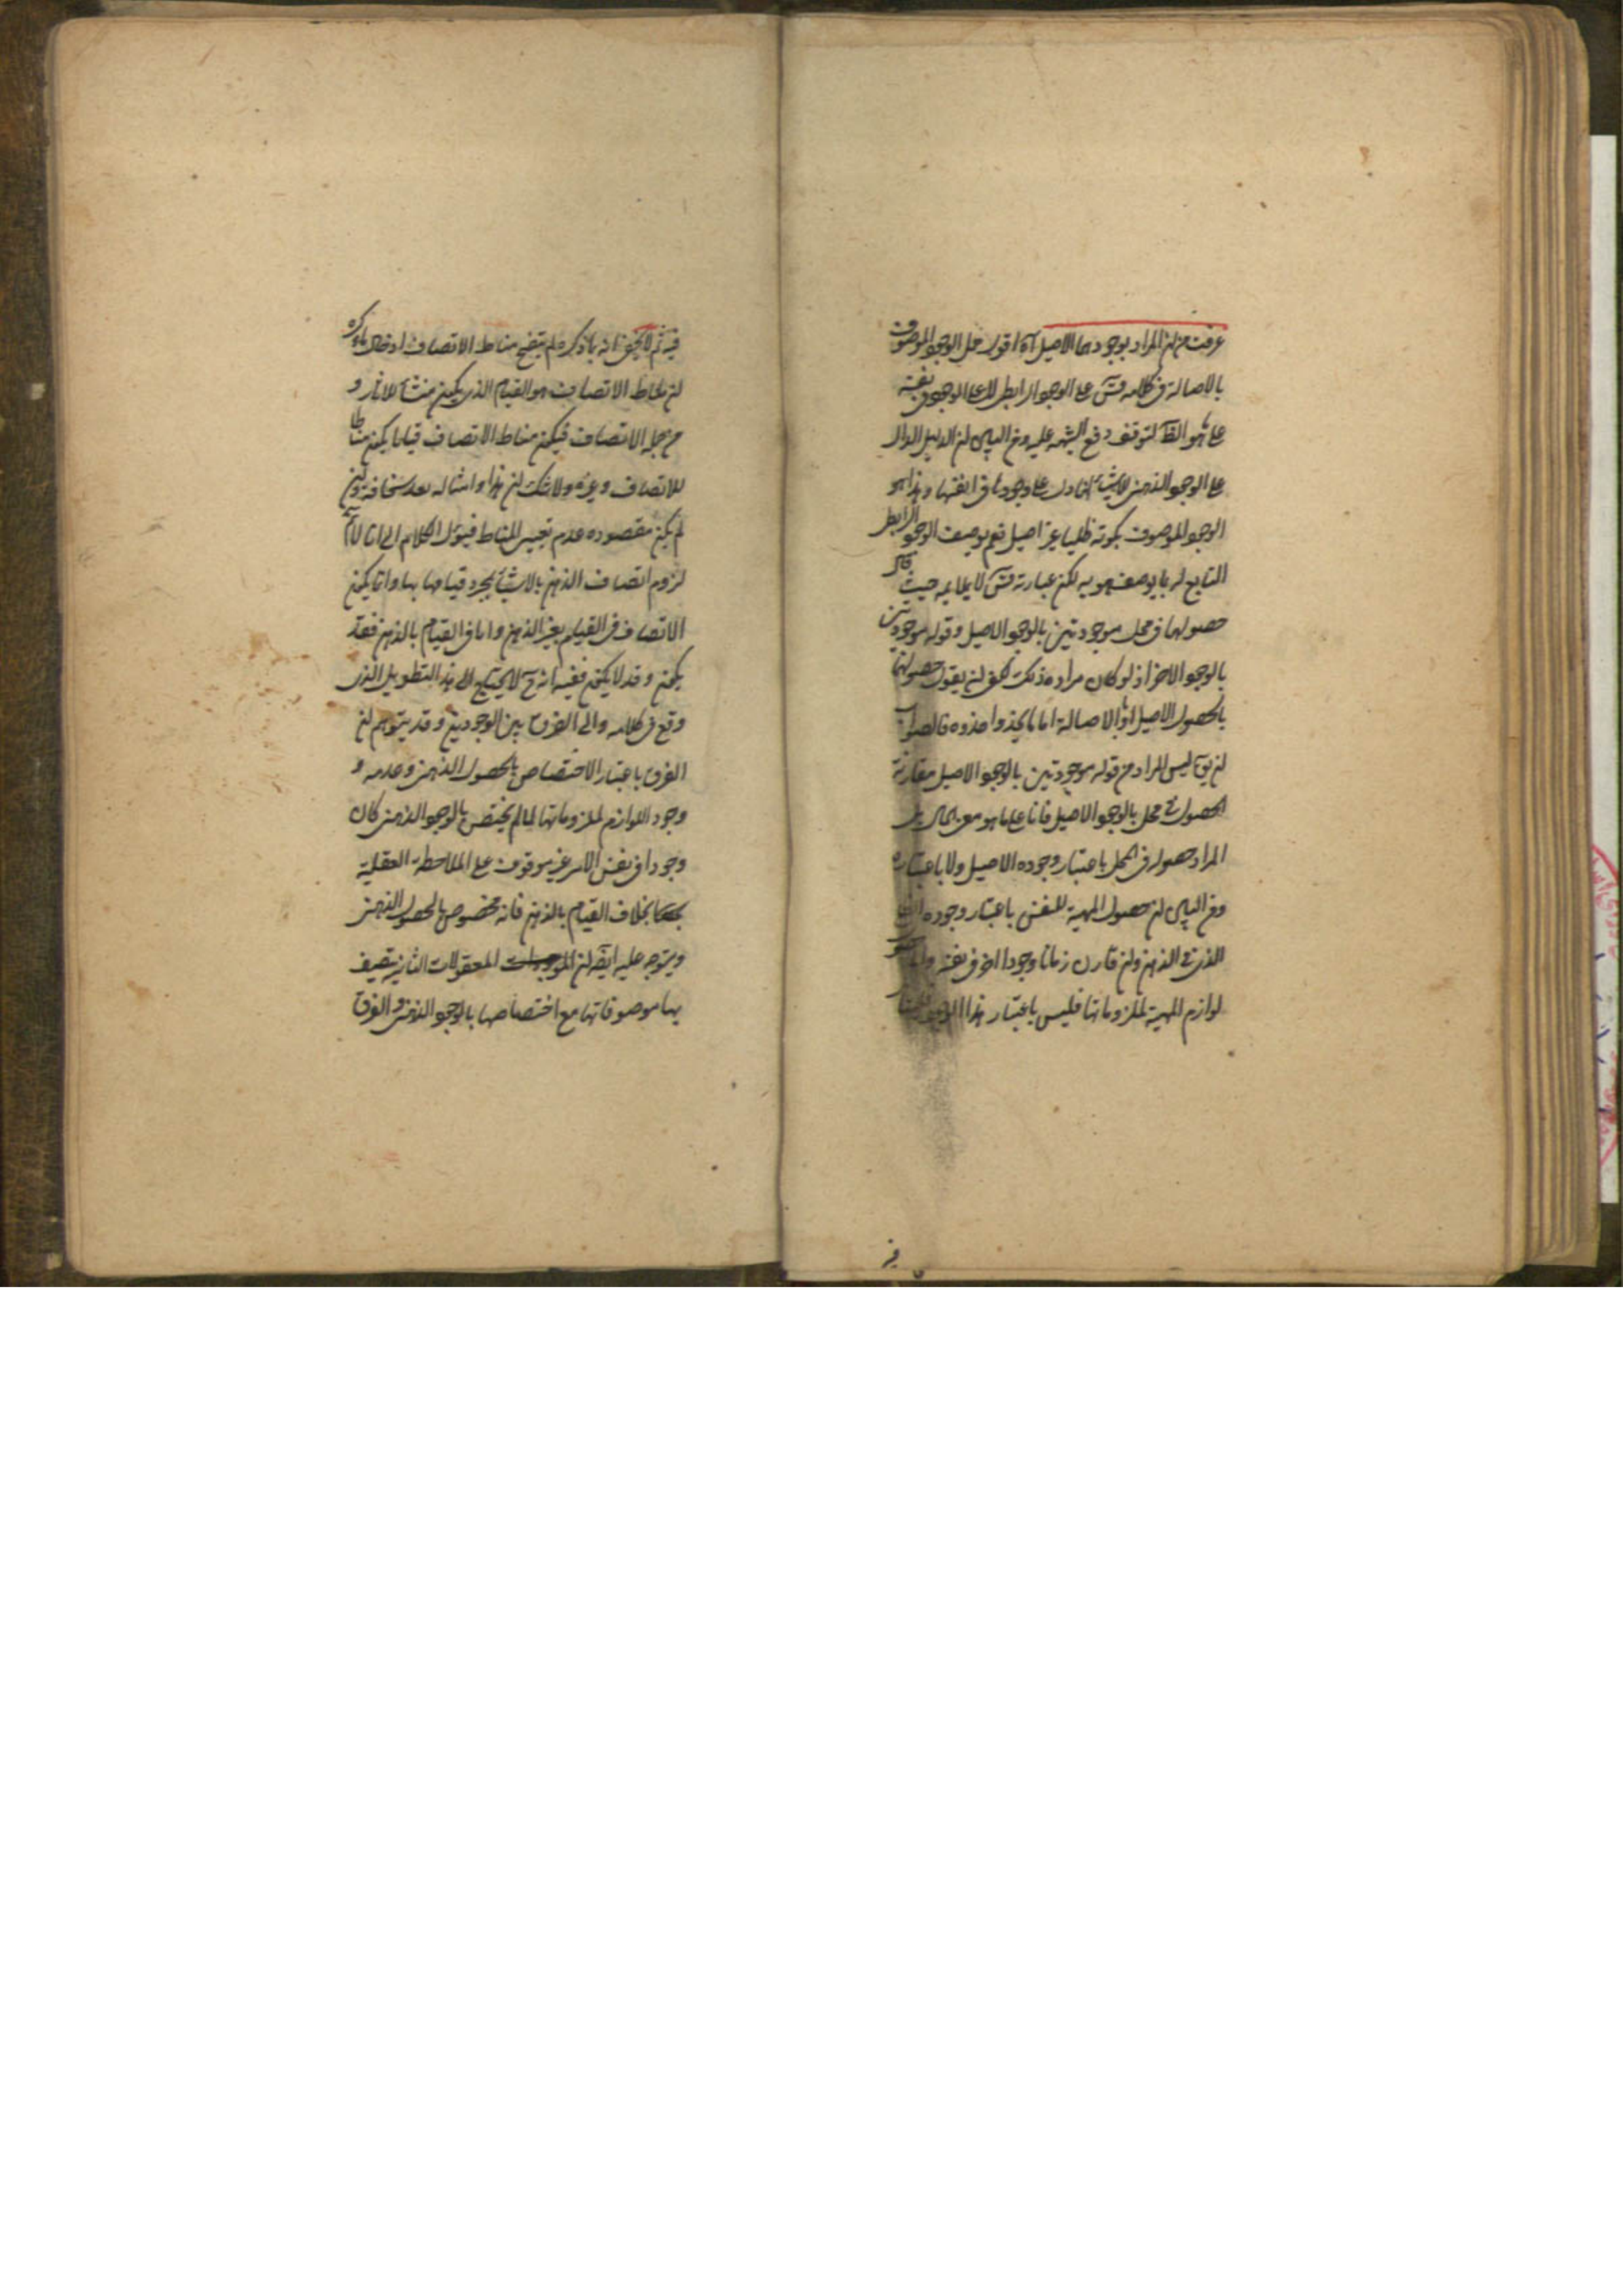 عرفت من ان المراد بوجودهما الاصيل آه اقول حمل الوجود الموصوف
بالاصالة في كلامه قدس على الوجود الرابطي لا على الوجود في نفسه
على ما هو الظ لتوقف دفع الشبهة عليه ومن البين ان الدليل الدال
على الوجود الذهني للاشياء انما دل على وجودها في انفسها وهذا هو
الوجود الموصوف بكونه ظليا غير اصيل نعم يوصف الوجود الرابطي
التابع له بما يوصف هو به لكن عبارته قدس لا يلايمه حيث قال
حصولهما في محل موجودتين بالوجود الاصيل وقوله موجودتين
بالوجود الاخر اذ لو كان مراده ذلك لكفى ان يقول حصولهما
بالحصول الاصيل او بالاصالة او ما يحذو حذوه فالصواب
ان يق ليس المراد من قوله موجودتين بالوجود الاصيل مقارنة
الحصول في محل بالوجود الاصيل على ما هو معنى الحال بل
المراد حصوله في المحل باعتبار وجوده الاصيل ولا باعتباره
ومن البين ان حصول المهية للنفس باعتبار وجوده
الذي في الذهن وان قارن زمانا وجودا اخر في نفسه واما
لوازم المهية لملزوماتها فليس باعتبار هذا الوجود
في
فيه ثم لا يخفى انه بما ذكره لم يتضح مناط الاتصاف اذ حاصل ما ذكره
ان مناط الاتصاف هو القيام الذي يكون منشأ للاثار و
من جملة الاتصاف فيكون مناط الاتصاف قياما يكون مناطا
للاتصاف وغيره ولا شك ان هذا وامثاله يعد سخافة وان
لم يكن مقصوده عدم تعيين المناط فيئول الكلام الى انا لا نم
لزوم اتصاف الذهن بالاشياء بمجرد قيامها بها وانما يكون
الاتصاف في القيام بغير الذهن واما في القيام بالذهن فقد
يكون وقد لا يكون ففيه انه ح لا يحتاج الى هذا التطويل الذي
وقع في كلامه والى الفرق بين الوجودين وقد يتوهم ان
الفرق باعتبار الاختصاص بالحصول الذهني وعدمه و
وجود اللوازم لملزوماتها لما لم يختص بالوجود الذهني كان
وجودا في نفس الامر غير موقوف على الملاحظة العقلية
بخلاف القيام بالذهن فانه مخصوص بالحصول الذهني
ويتوجه عليه ايضا ان المعقولات الثانية يتصف
بها موصوفاتها مع اختصاصها بالوجود الذهني والفرق